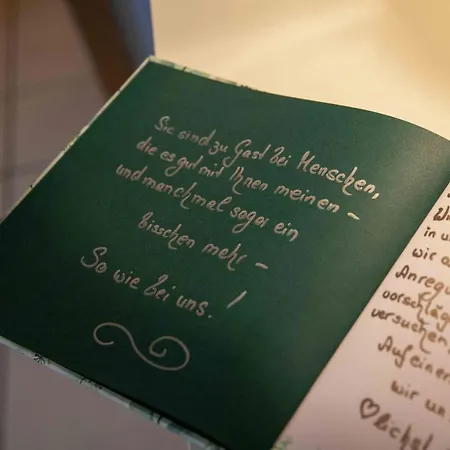 Sie sind zu Gast bei Menschen,
die es gut mit Ihnen meinen –
und manchmal sogar ein
bisschen mehr –
So wie bei uns.!
in u
wir a
Anregu
vorschläg
versuchen,
Auf einer
wir un